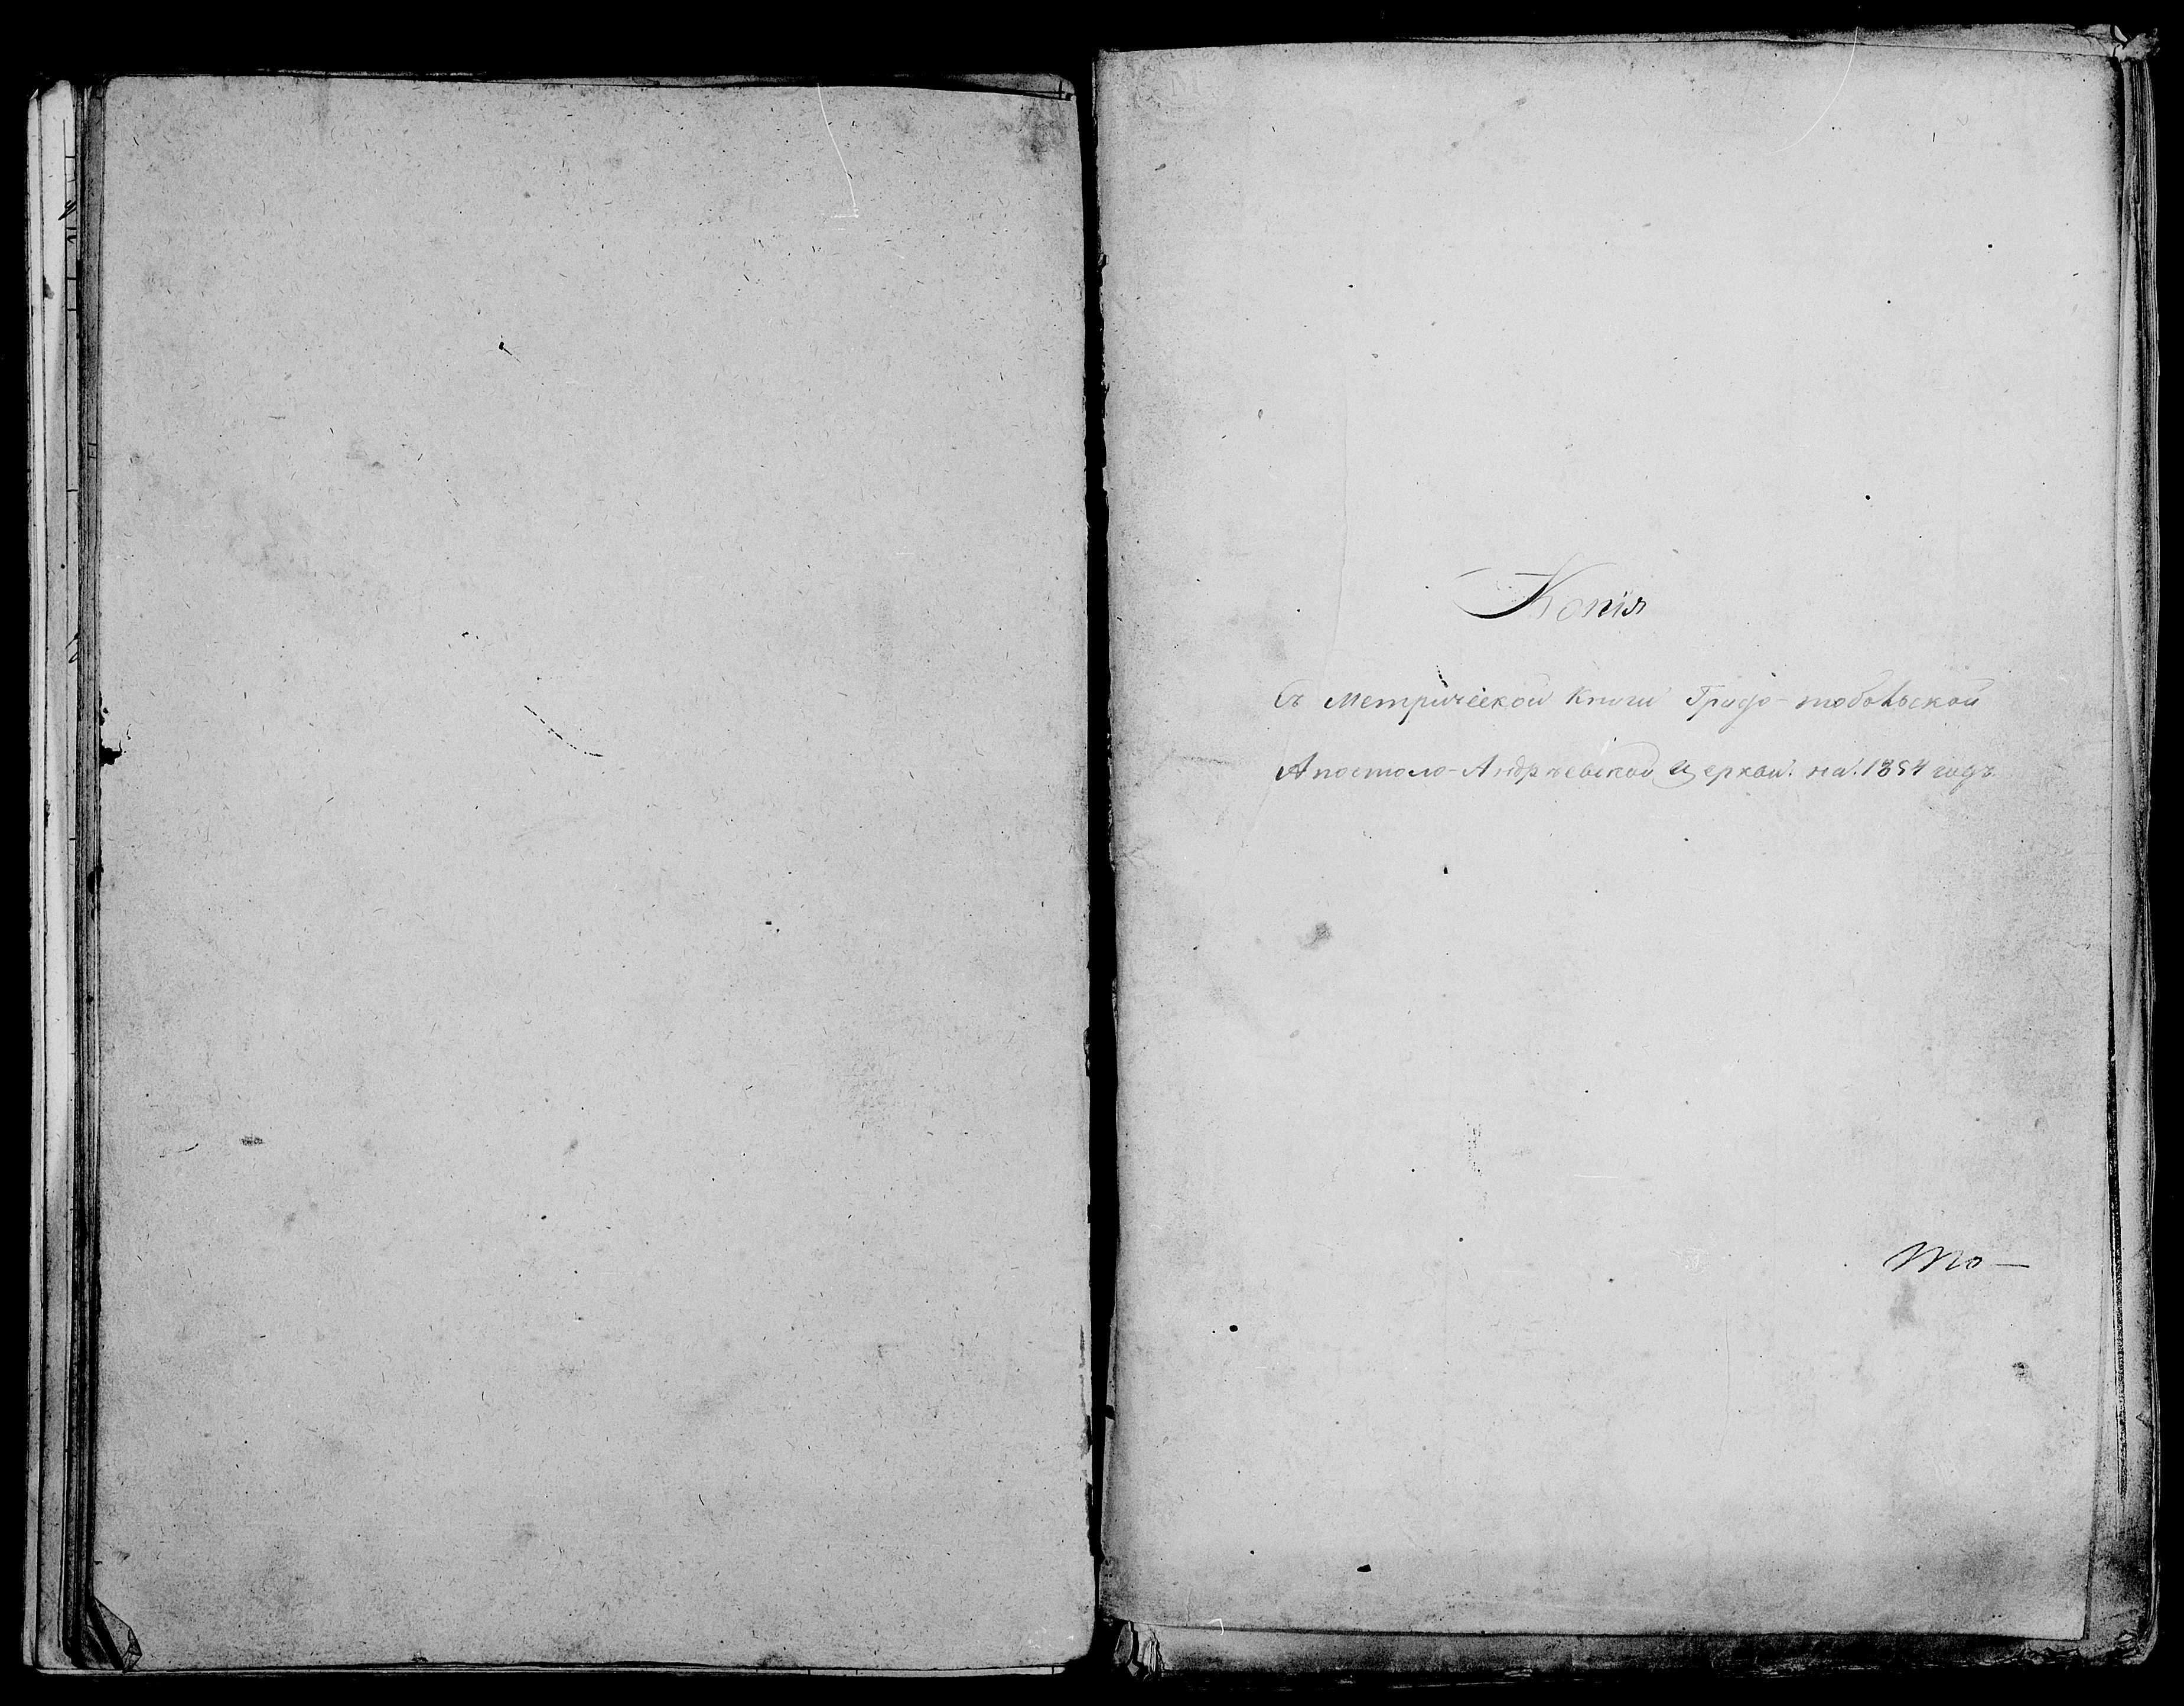 Копія
Съ Метрической Книги Градо-тобольской
Апостоло-Андреевской Церкви. на. 1854 годъ
То—